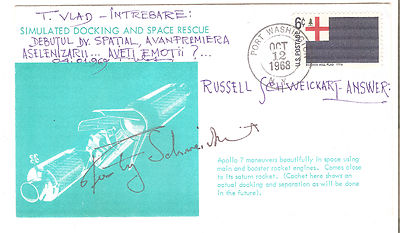 T. VLAD - ÎNTREBARE:
SIMULATED DOCKING AND SPACE RESCUE
DEBUTUL DV. SPAȚIAL, AVANPREMIERA
ASELENIZĂRII... AVEȚI EMOȚII ?...
PORT WASHINGTON
OCT
12
1968
N.Y.
6¢
U.S. POSTAGE
RUSSELL SCHWEICKART - ANSWER:
Apollo 7 maneuvers beautifully in space using
main and booster rocket engines. Comes close
to its saturn rocket. (Cachet here shows an
actual docking and separation as will be done
in the future).